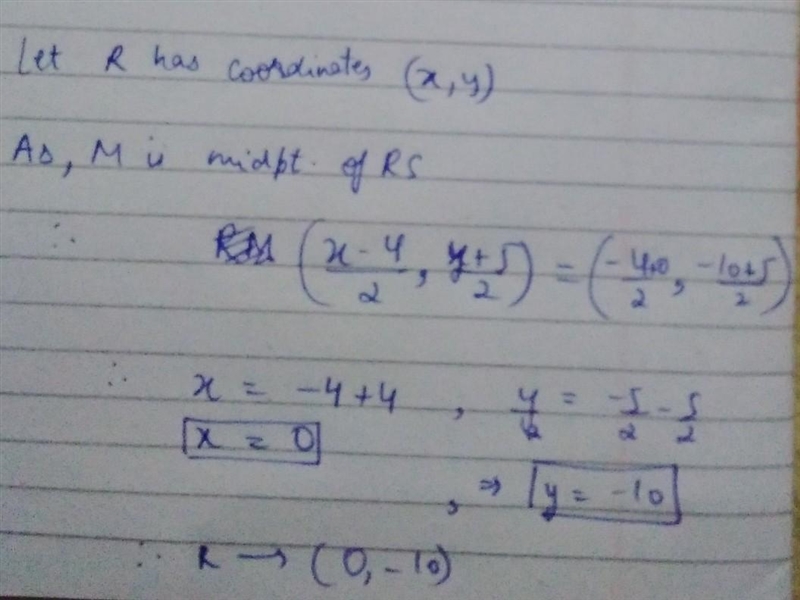 Let R has coordinates (x,y)
As, M is midpt. of RS
∴ ((x-4)/2, (y+5)/2) = ((-4+0)/2, (-10+5)/2)
∴ x = -4+4 , y/2 = -5/2 - 5/2
x = 0
, ⇒ y = -10
∴ R → (0,-10)